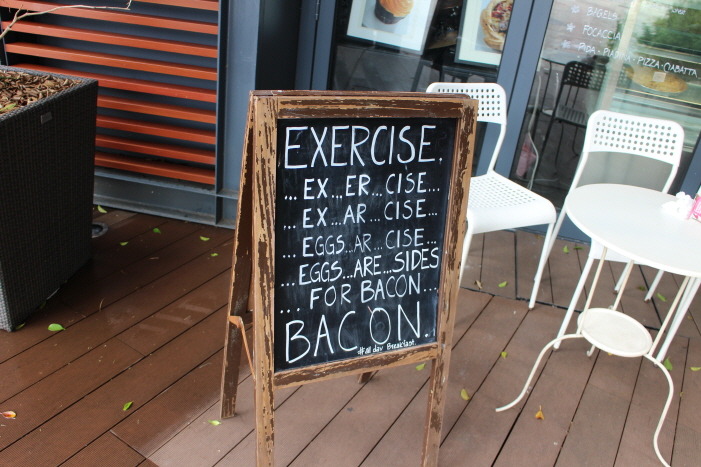 * BAGELS
* FOCACCIA
* PIDA · PIADINA · PIZZA · CIABATTA
EXERCISE.
...EX...ER...CISE...
...EX...AR...CISE...
...EGGS...AR...CISE...
...EGGS...ARE...SIDES
...FOR BACON...
BACON.
#all day Breakfast.